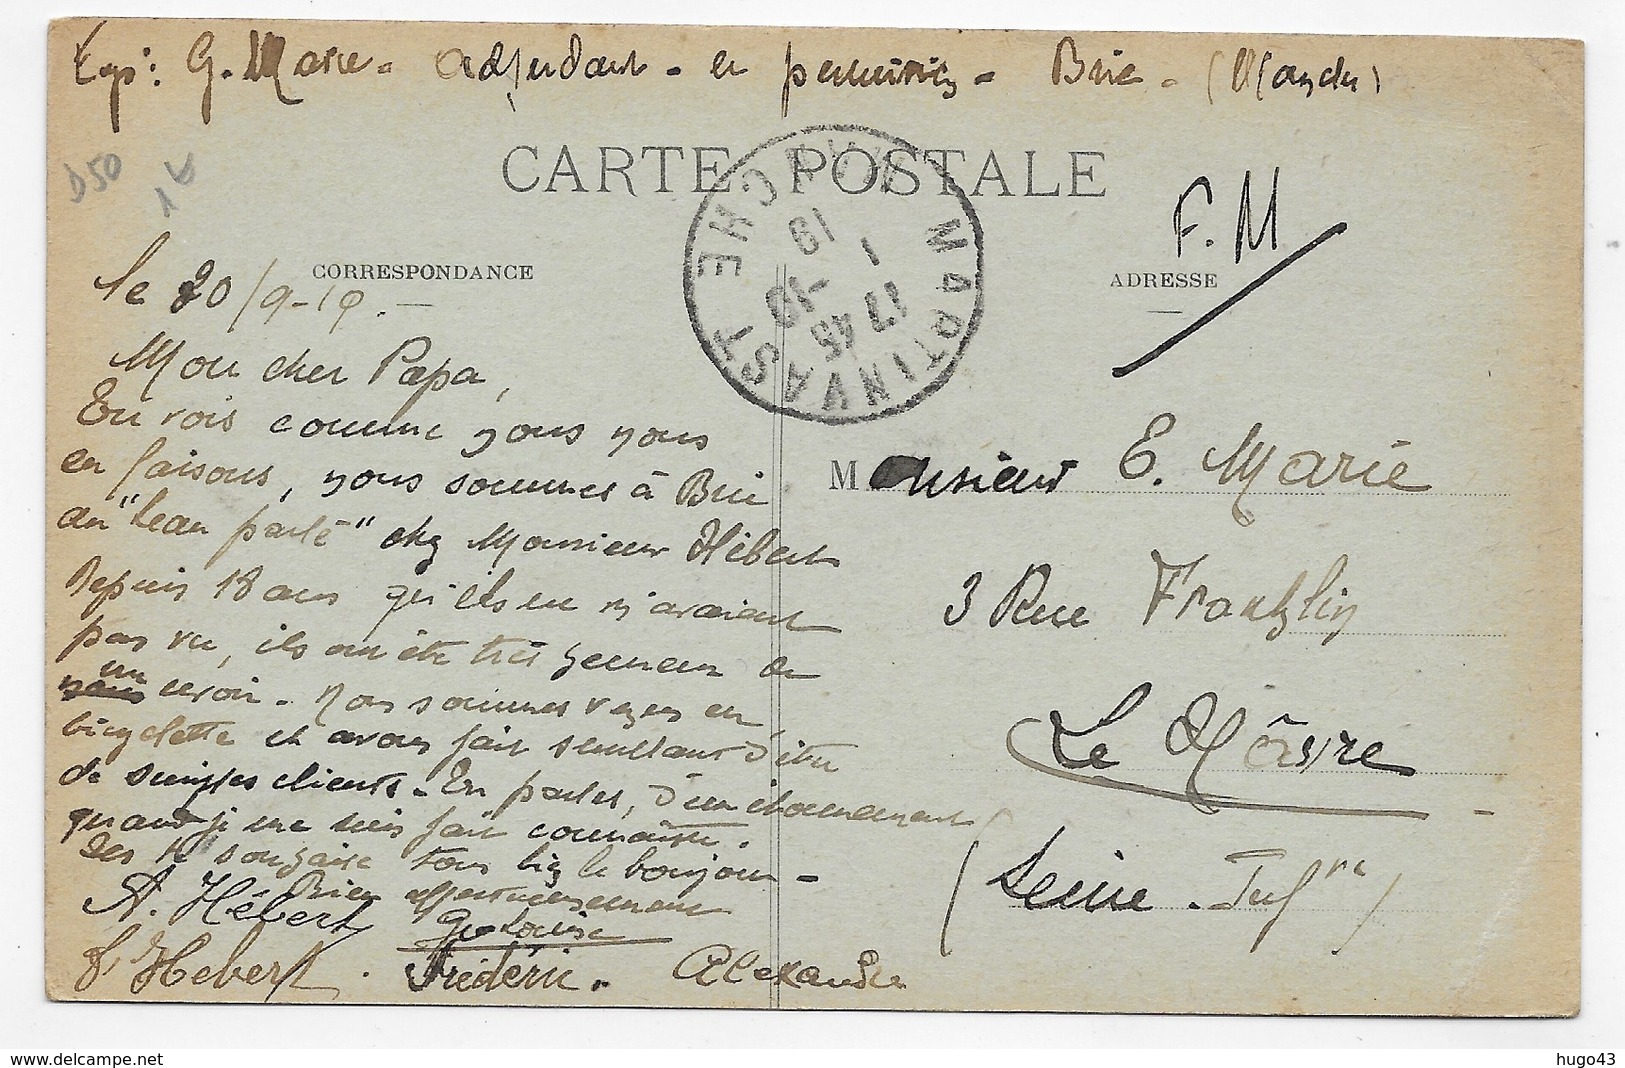 Exp: G. Marie - adjudant - en permission - Brix - (Manche)
D50
CARTE POSTALE
MARTINVAST MANCHE
17 45
1 -10
19
F.M
CORRESPONDANCE
ADRESSE
le 20/9-19. -
Mon cher Papa,
En vois comme nous nous
en faisons, nous sommes à Brix
au "Beau parlé" chez Monsieur Hébert
Depuis 18 ans qu'ils ne m'avaient
pas vu, ils ont été très heureux de
un revoir. Nous sommes venus en
bicyclette et avons fait semblant d'être
de simples clients. Tu parles, d'un étonnement
quand je me suis fait connaître.
tous le bonjour -
Bien affectueusement
G. Louise
A. Hébert
Hebert. Frédéric. Alexandre
Monsieur E. Marie
3 Rue Franklin
Le Hâvre
(Seine-Infre)
www.delcampe.net
hugo43